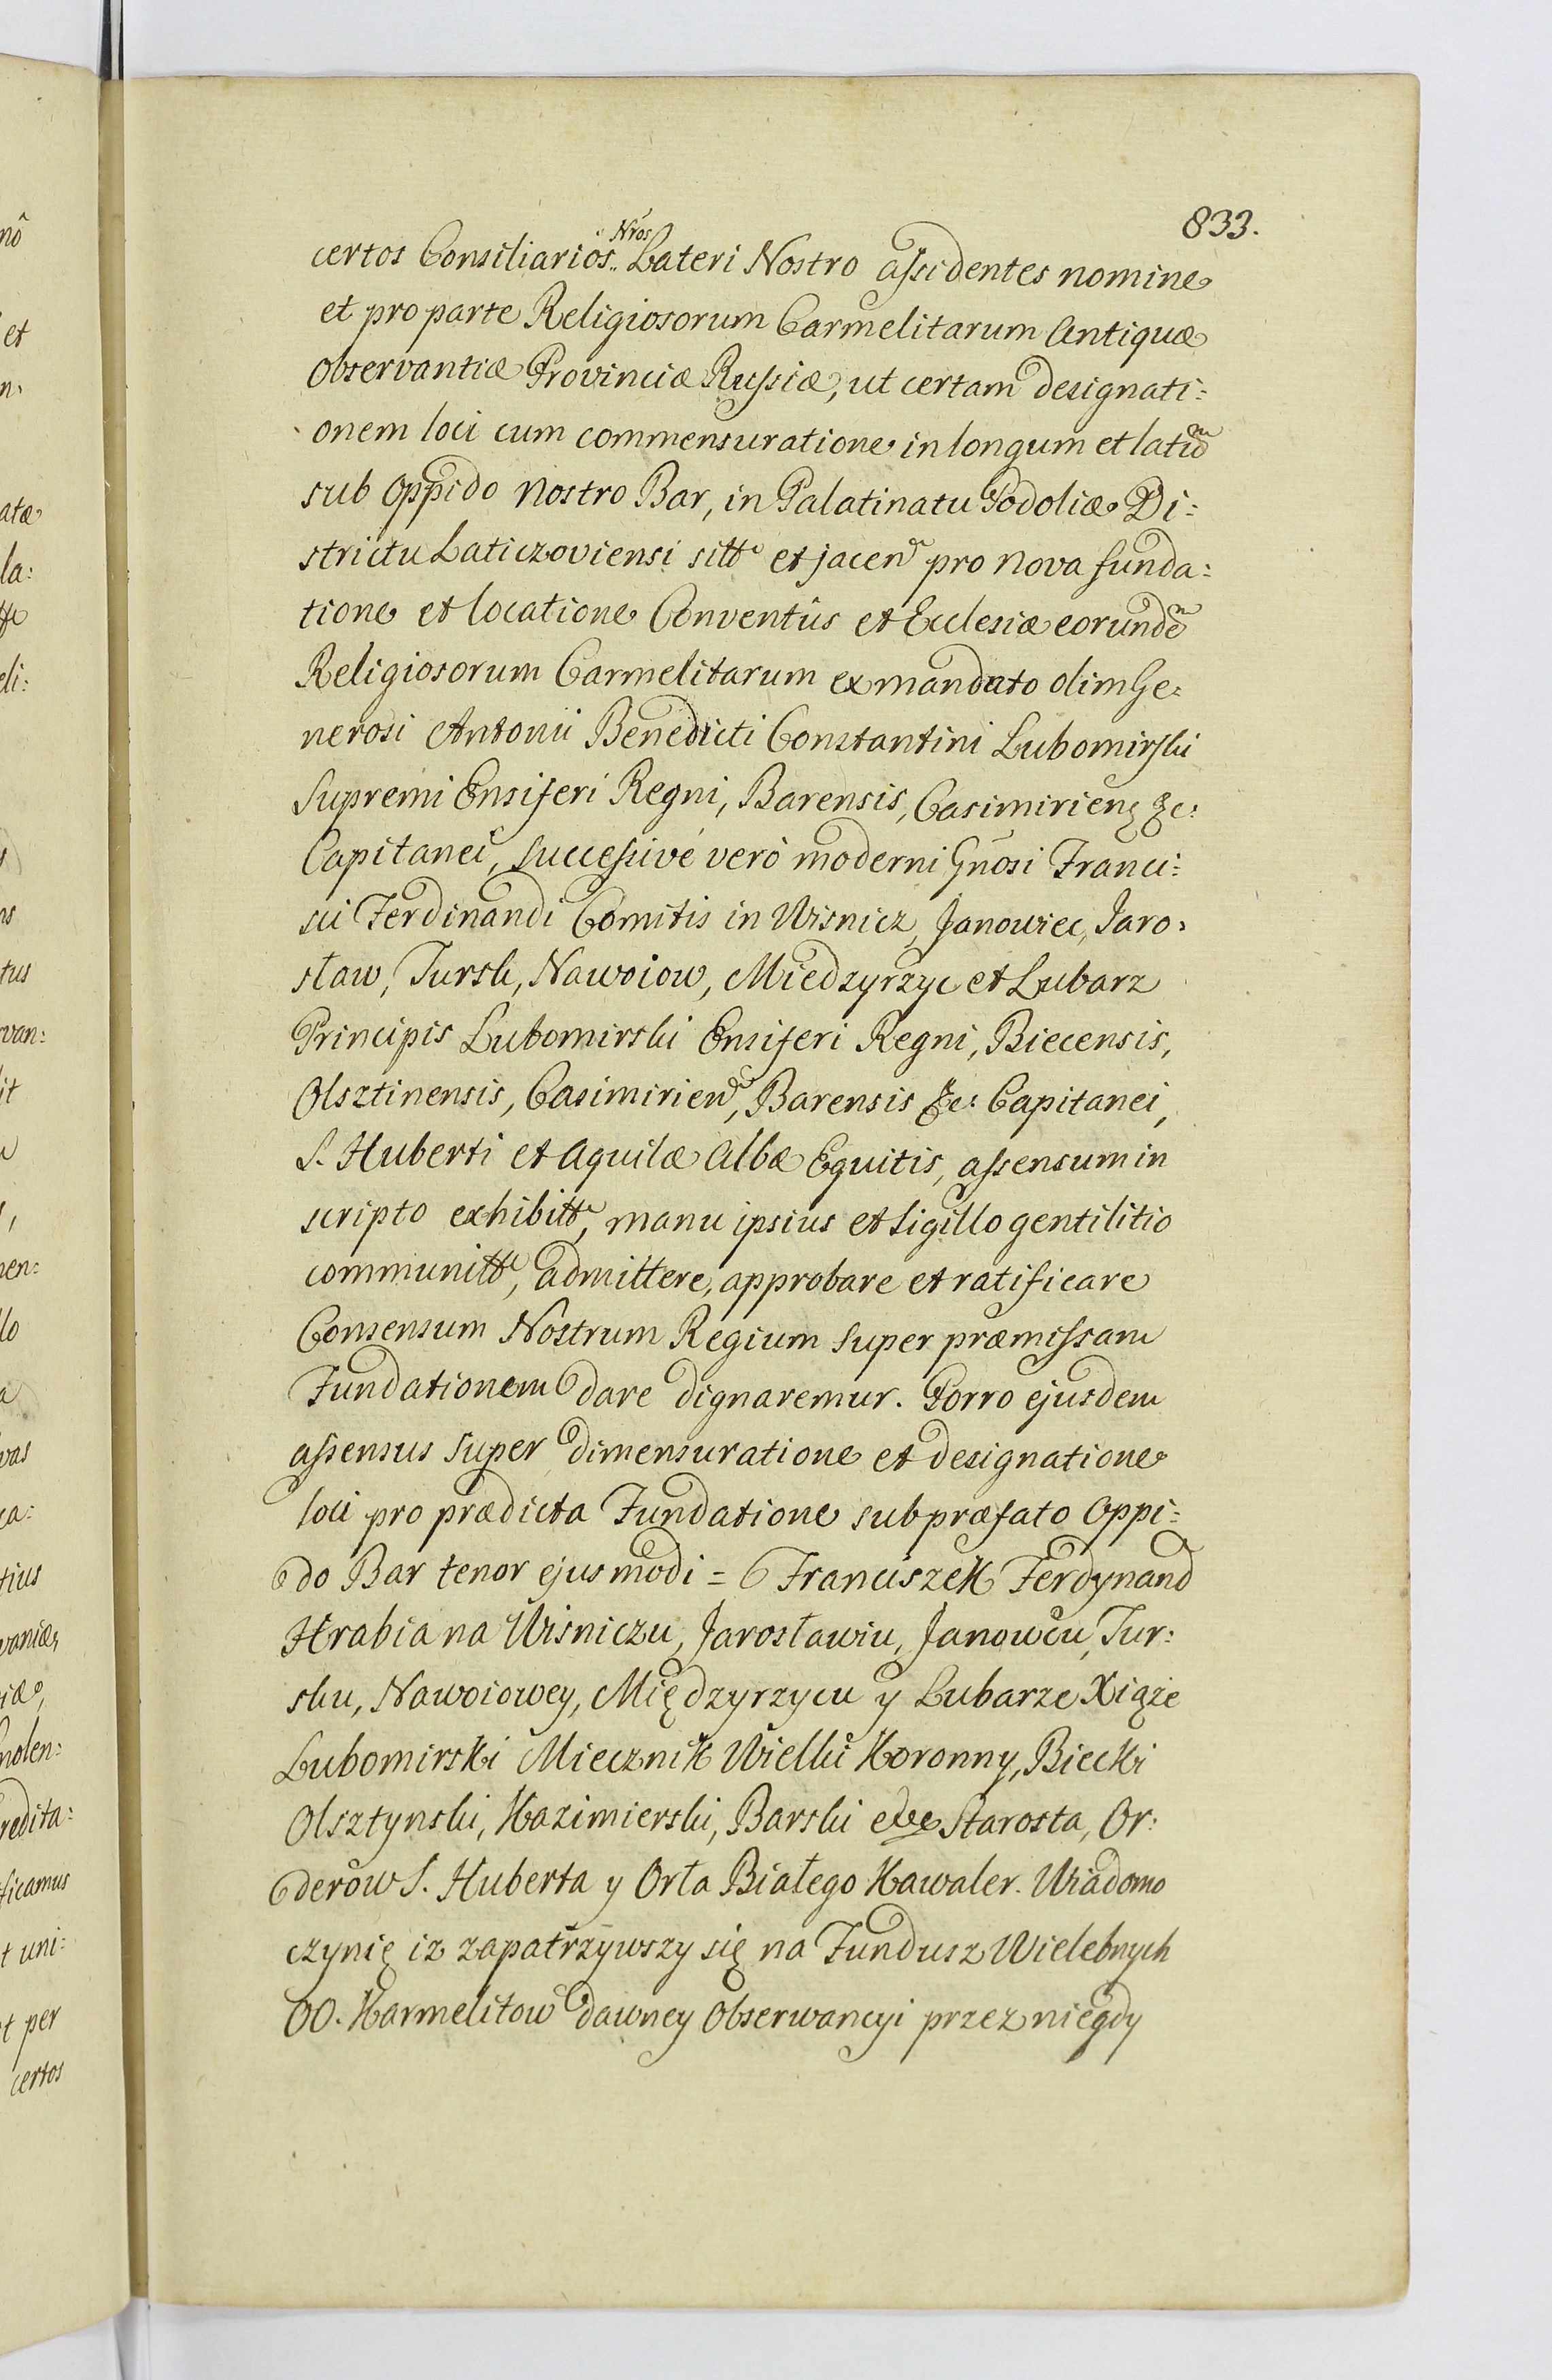 833.
certos Consiliarios Nros Lateri Nostro assidentes nomine
et pro parte Religiosorum Carmelitarum Antiquæ
Observantiæ Provinciæ Russiæ, ut certam designati:
onem loci cum commensuratione in longum et latum
sub Oppido Nostro Bar, in Palatinatu Podoliæ Di:
strictu Laticzoviensi sitt et jacen pro nova funda:
tione et locatione Conventûs et Ecclesiæ eorundem
Religiosorum Carmelitarum ex mandato olim Ge:
nerosi Antonii Benedicti Constantini Lubomirski
Supremi Ensiferi Regni, Barensis, Casimirien &c:
Capitanei, successivé verò moderni Gnosi Franci:
sci Ferdinandi Comitis in Wisnicz, Janowiec, Jaro:
sław, Tursk, Nawoiow, Miedzyrzyc et Lubarz
Principis Lubomirski Ensiferi Regni, Biecensis,
Olsztinensis, Casimirien, Barensis &c: Capitanei,
S. Huberti et Aquilæ Albæ Equitis, assensum in
scripto exhibitt, manu ipsius et Sigillo gentilitio
communitt, admittere, approbare et ratificare
Consensum Nostrum Regium super præmissam
Fundationem dare dignaremur. Porro ejusdem
assensus super dimensuratione et designatione
loci pro prædicta Fundatione sub præfato Oppi:
do Bar tenor ejusmodi = Franciszek Ferdynand
Hrabia na Wisniczu, Jarosławiu, Janowcu, Tur:
sku, Nawoiowey, Międzyrzycu y Lubarze Xiąże
Lubomirski Miecznik Wielki Koronny, Biecki
Olsztynski, Kazimierski, Barski etc Starosta, Or:
derow S. Huberta y Orła Białego Kawaler. Wiadomo
czynię iz zapatrzywszy się na Fundusz Wielebnych
OO. Karmelitow dawney Obserwancyi przez niegdy
nô
et
n.
atæ
la:
eli:
ns
tus
rvan:
it
nen:
llo
vas
ca:
tius
vaniæ,
iæ,
nolen:
redita:
ficamus
t uni:
t per
certos